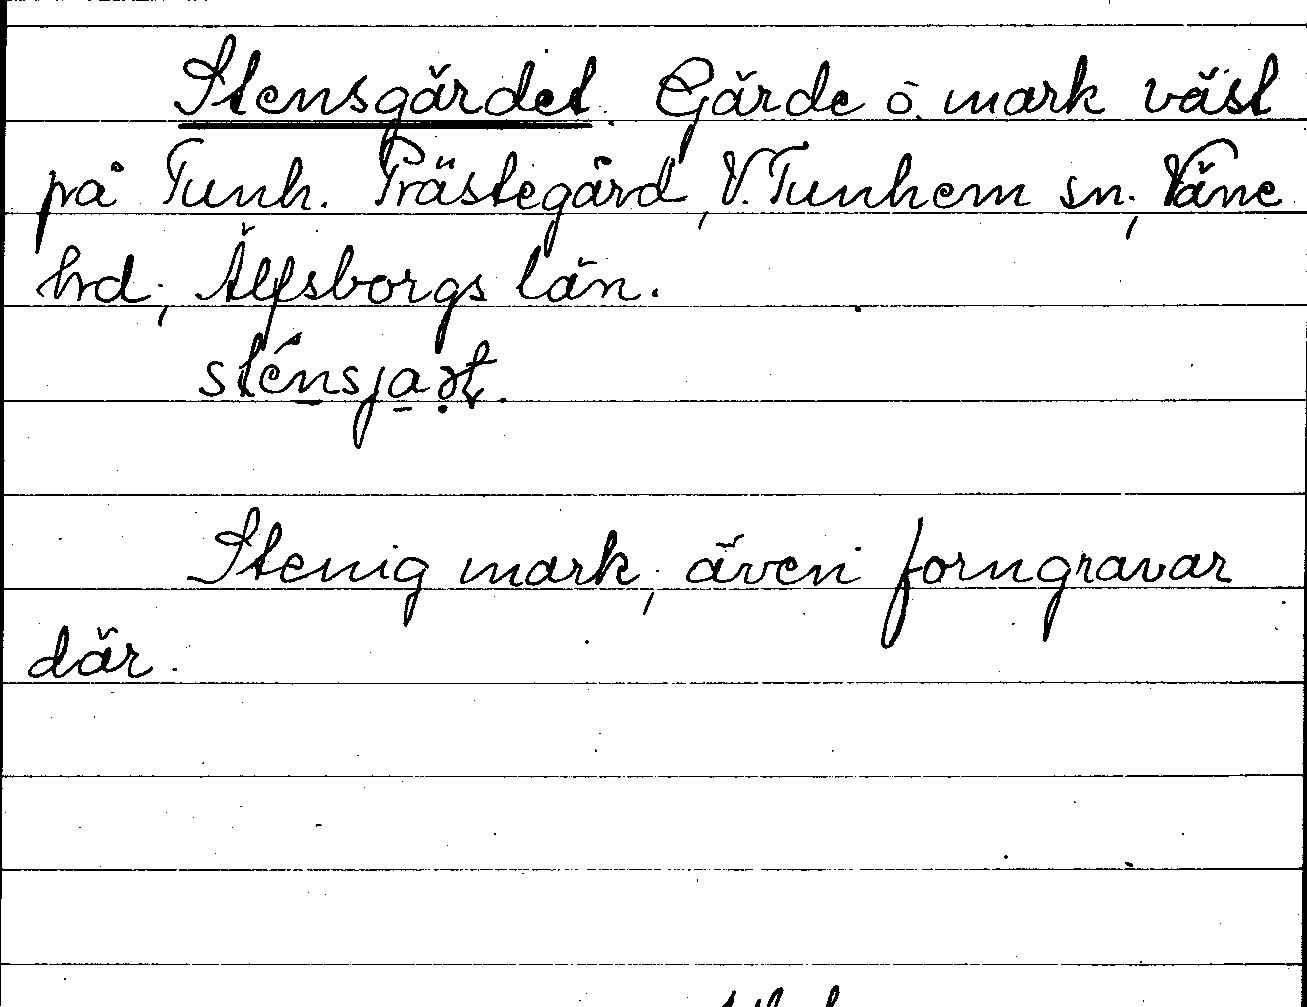 Stensgärdet. Gärde o. mark väst
på Tunh. Prästegård, V. Tunhem sn, Väne
hrd, Älfsborgs län.
sténsjaṛt.
Stenig mark, även forngravar
där.